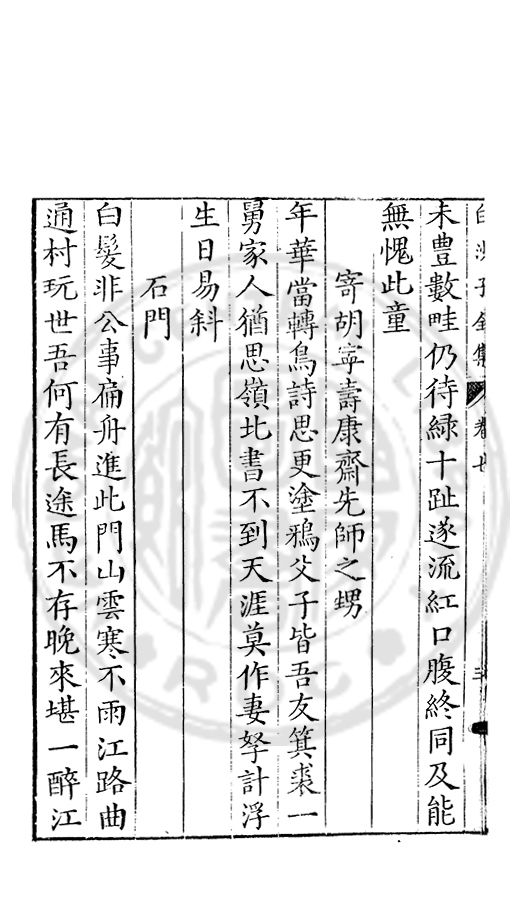 白沙子全集 卷七
未豊數畦仍待緑十趾遂流紅口腹終同及能
無愧此童
寄胡寧壽康齋先師之甥
年華當轉鳥詩思更塗鴉父子皆吾友箕裘一
舅家人猶思嶺北書不到天涯莫作妻孥計浮
生日易斜
石門
白髮非公事扁舟進此門山雲寒不雨江路曲
通村玩世吾何有長途馬不存晚來堪一醉江